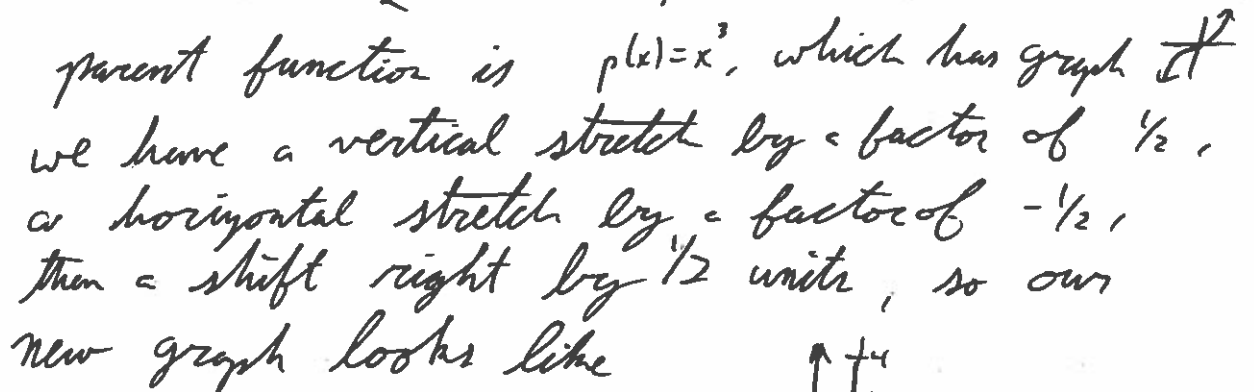 parent function is p(x)=x³, which has graph
we have a vertical stretch by a factor of 1/2,
a horizontal stretch by a factor of -1/2,
then a shift right by 1/2 units, so our
new graph looks like
4